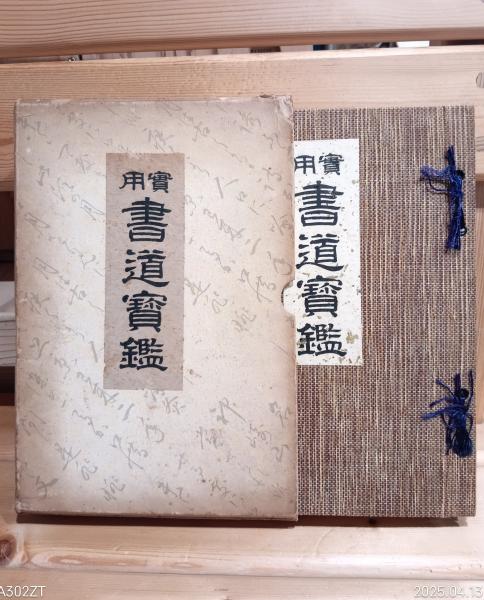 實用
書道寶鑑
實用
書道寶鑑
A302ZT
2025.04.13